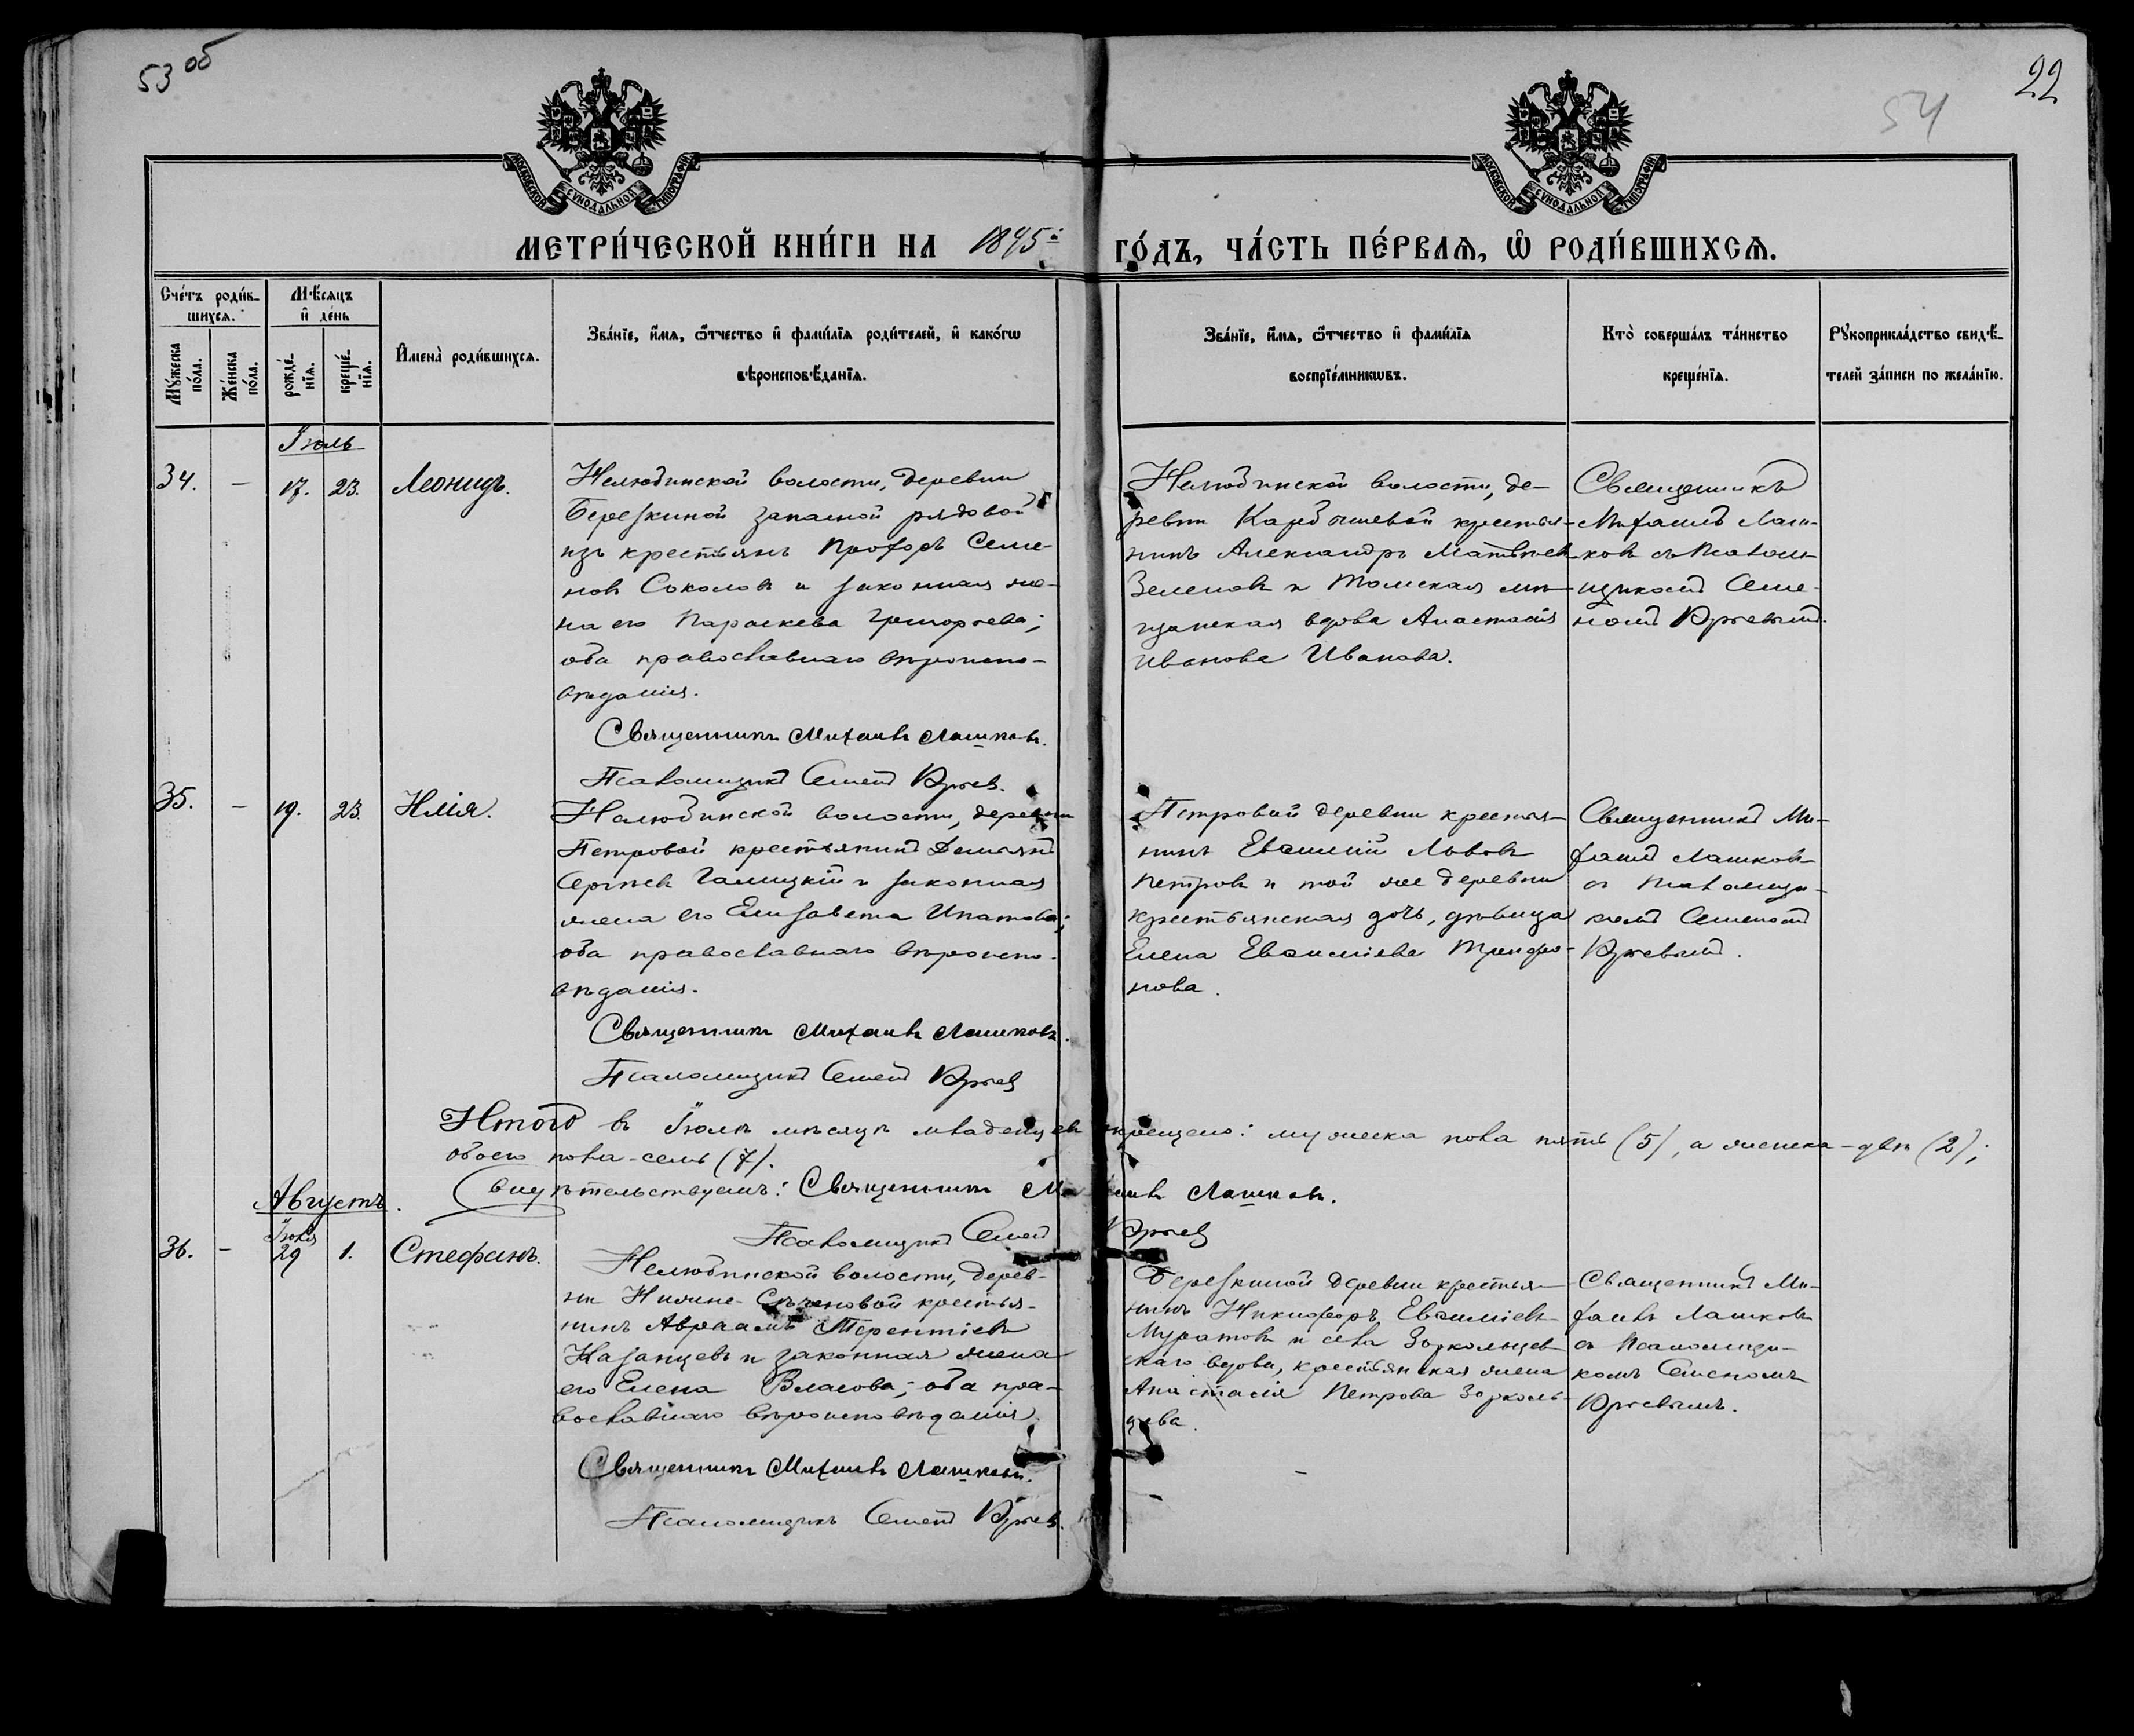 53 об
22
54
МОСКОВСКОЙ СѴНОДАЛЬНОЙ ТИПОГРАФІИ
МОСКОВСКОЙ СѴНОДАЛЬНОЙ ТИПОГРАФІИ
МЕТРИ́ЧЕСКОЙ КНИ́ГИ НА 1895й ГО́ДЪ, ЧА́СТЬ ПЕ́РВАѦ, Ѡ РОДИ́ВШИХСѦ.
Сче́тъ роди́в-
шихсѧ.
Мꙋ́жеска по́ла.
Же́нска по́ла.
Мѣ́сѧцъ
и҆ де́нь
рожде́-
нїѧ.
креще́-
нїѧ.
И҆мена̀ роди́вшихсѧ.
Зва́нїе, и҆́мѧ, ѻ҆́тчество и҆ фами́лїѧ роди́телей, и҆ како́гѡ
вѣроисповѣ́данїѧ.
Зва́нїе, и҆́мѧ, ѻ҆́тчество и҆ фами́лїѧ
воспрїе́мникѡвъ.
Кто̀ соверша́лъ та́инство
креще́нїѧ.
Рꙋкоприкла́дство свидѣ́-
телей за́писи по жела́нїю.
Іюль
34. — 17. 23. Леонидъ.
Нелюбинской волости, деревни
Березкиной запасной рядовой
изъ крестьянъ Прохоръ Семе-
новъ Соколовъ и законная же-
на его Параскева Григорьева;
оба православнаго вѣроиспо-
вѣданія.
Священникъ Михаилъ Лашковъ.
Псаломщикъ Семенъ
Нелюбинской волости, де-
ревни Карбышевой крестья-
нинъ Александръ Матвѣевъ
Зеленовъ и Томская мѣ-
щанская вдова Анастасія
Иванова Иванова.
Священникъ
Михаилъ Лаш-
ковъ съ Псалом-
щикомъ Семе-
номъ
35. — 19. 23. Илія.
Нелюбинской волости, деревни
Петровой крестьянинъ Демьянъ
Сергѣевъ Галицкій и законная
жена его Елисавета Ипатова;
оба православнаго вѣроиспо-
вѣданія.
Священникъ Михаилъ Лашковъ.
Псаломщикъ Семенъ
Петровой деревни крестья-
нинъ Евѳимій Львовъ
Петровъ и той же деревни
крестьянская дочь, дѣвица
Елена Евѳиміева Трифо-
нова.
Священникъ Ми-
хаилъ Лашковъ
съ Псаломщи-
комъ Семеномъ
Итого въ Іюлѣ мѣсяцѣ младенцевъ крещено: мужеска пола пять (5), а женска - двѣ (2);
обоего пола - семь (7).
Свидѣтельствуемъ: Священникъ Михаилъ Лашковъ.
Псаломщикъ Семенъ
Августъ.
Іюля
36. — 29 1. Стефанъ.
Нелюбинской волости, дерев-
ни Нижне-Сѣченовой крестья-
нинъ Авраамъ Терентіевъ
Казанцевъ и законная жена
его Елена Власова; оба пра-
вославнаго вѣроисповѣданія.
Священникъ Михаилъ Лашковъ.
Псаломщикъ Семенъ
Березкиной деревни крестья-
нинъ Никифоръ Евѳиміевъ
Муратовъ и села Зоркольцев-
скаго вдова, крестьянская жена
Анастасія Петрова Зорколь-
цева.
Священникъ Ми-
хаилъ Лашковъ
съ Псаломщи-
комъ Семеномъ